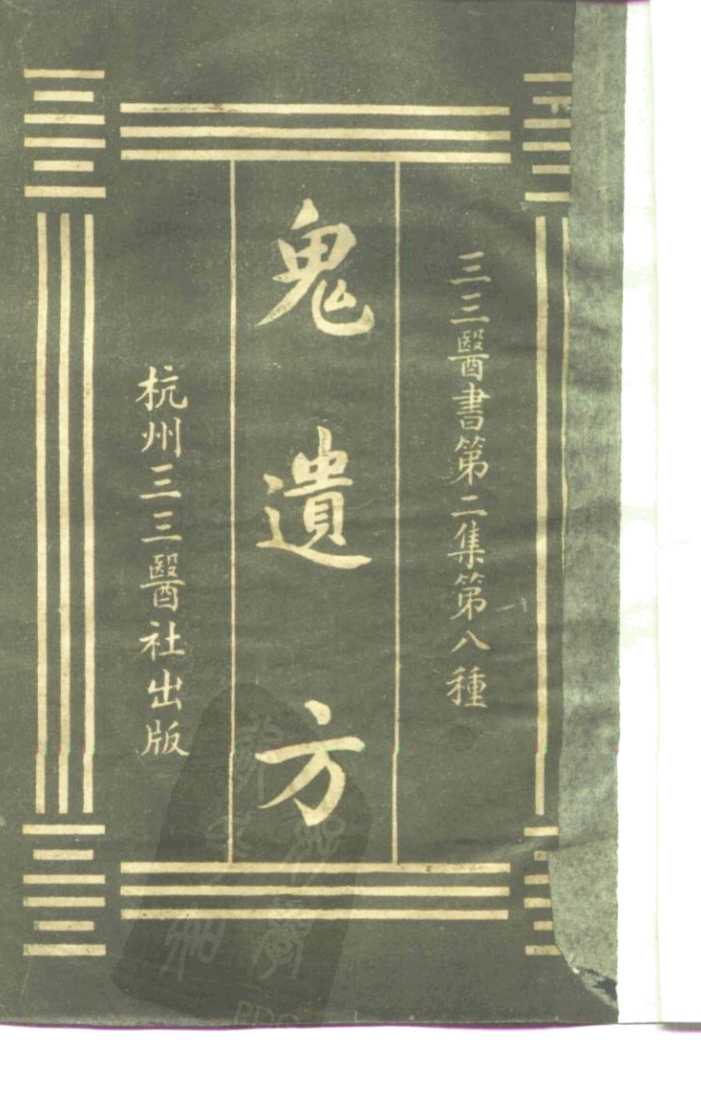 三三醫書第二集第八種
鬼遺方
杭州三三醫社出版